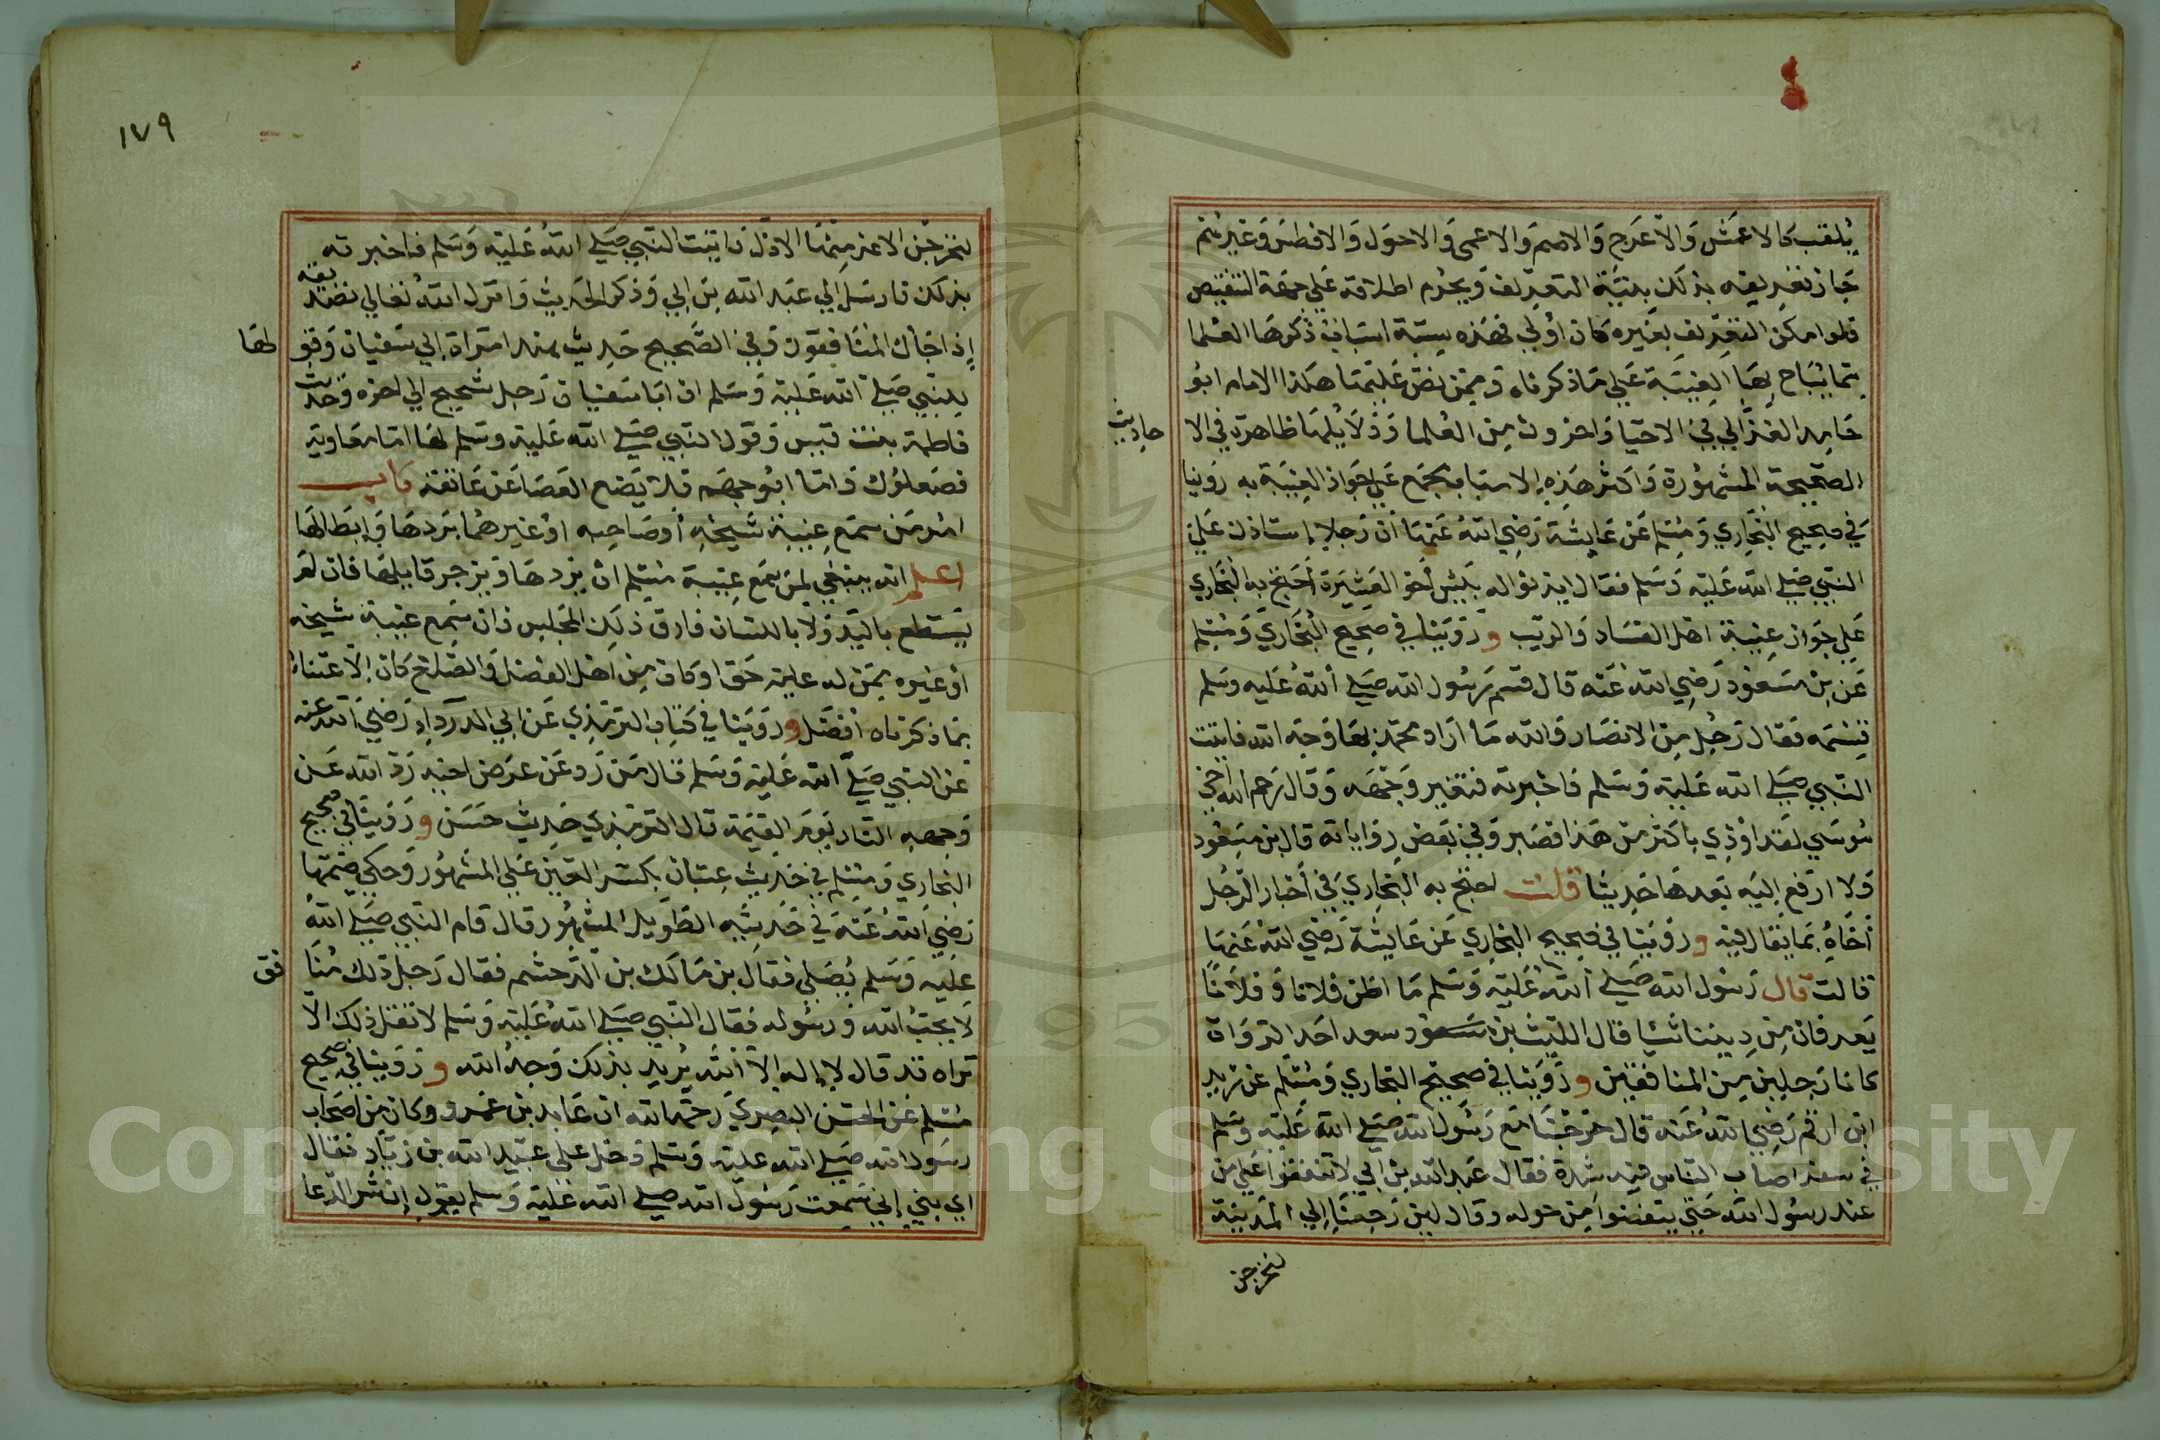 يُلقب كالاعمش وَالاعرج وَالاصم وَالاعمى وَالاحول وَالافطس وَغيرهم
جَاز تعريفه بذلك بنيَّة التعريف وَيحرم اطلاقه عَلي جهَة التنقيص
فلو امكن التعريف بغيره كان اوْلي فهَذه ستة اسبَاب ذكرهَا العُلما
مما يُبَاح بهَا الغيبَة عَلي مَا ذكرناه وَممن نصّ عَليهَا هكذا الامام ابوُ
حَامد الغزالي في الاحيَا وَاخرون من العُلما وَدَلايُلهَا ظاهرة في الا
حاديث
الصَّحيحة المشهُورة وَاكثر هَذه الاسبَاب مجمَع عَلي جوَاز الغيبَة به روَينا
في صحيح البُخاري وَمُسْلم عَن عَايشة رَضي اللهُ عَنهَا ان رَجلا استاذن عَلي
النَّبي صَلي الله عَليه وَسَلم فقال ايذنوا له بئس اخو العَشيرَة احتج به البُخاري
عَلي جَوَاز غيبَة اهل الفسَاد وَالريَب وروَينا في صحيح البُخَاري وَمُسْلم
عَن بن مسعود رَضي الله عَنه قال قسم رَسُول الله صَلي اللهُ عَليه وَسَلم
قسمَه فقال رَجُل من الانصَار وَالله مَا ارَاد محمد بهَا وَجه الله فاتيت
النَّبي صَلي الله عَليه وَسَلم فَاخبرته فتغير وَجهَه وَقال رَحم الله اخي
مُوسَي لقد اوُذي باكثر من هَذا فصَبر وَفي بعَض رِوَاياته قال بن مسعُود
فَلا ارَفع اليَه بَعدهَا حَديثا قلت احتج به البخاري في اخبَار الرّجُل
أخَاهُ بمَا يقال فيه وروَينا في صحيح البخاري عَن عَايشة رَضي اللهُ عَنهَا
قالت قال رَسُول الله صَلي اللهُ عَليه وَسَلم مَا اظن فلانا وَفلانًا
يَعرفان من ديننا شيا قال الليث بن سعد احَد الروَاة
كانا رَجلين من المنافقين وروَينا في صحيح البخاري وَمُسْلم عن زيد
ابن ارقم رَضي اللهُ عَنه قال خرَجْنَا مَع رَسُول الله صَلي اللهُ عَليه وَسَلم
في سفر اصَاب الناس فيه شدة فقال عَبد الله بن ابي لا تنفقوا عَلي من
عند رسُول الله حَتي ينفضوا مِن حوله وقال لين رَجعنَا الي المدينة
ليخرجن
١٧٩
ليخرجَن الاعز منهَا الاذل فاتيت النَّبي صَلي اللهُ عَليه وَسَلم فاخبرته
بذلك فارسَل الي عَبد الله بن ابي وَذكر الحَديث وَانزل اللهُ تعَالي تصديقه
إذا جَاك المنَافقون وَفي الصَّحيح حَديث هند امرَاة ابي سَفيان وَقو
لهَا
للنبي صَلي الله عَليه وَسَلم ان ابَا سَفيان رَجل شحيح الي اخره وَحَديث
فاطمة بنت قيس وَقول النَّبي صَلي الله عَليه وسَلم لهَا اما معَاوية
فصَعلوُك وَامّا ابوُ جهم فلا يَضع العصَا عَن عَاتقه بَاب
امْر مَن سمَع غيبة شيخه أو صَاحبه اوْ غيرهمَا بردهَا وَابطالهَا
اعلم انه ينبَغي لمن سمَع غيبة مُسْلم ان يردهَا وَيزجر قايلهَا فان لم
يَسَتطع باليَد وَلا باللسَان فارق ذلك المجَلس وَان سَمع غيبَة شيخه
اوْ غيرِه ممن له عليه حَق او كان مِن اهل الفضل وَالصَّلاح كَان الاعتناء
بمَا ذكرناه افضَل وروَينا في كتَاب الترمذي عَن ابي الدردَاء رَضي الله عنه
عَن النبي صَلي الله عَليه وَسَلم قال مَن رَد عَن عرض اخيه رَدّ الله عَن
وَجهه النار يوَم القيَمة قال الترمذي حَديث حَسَن وروَينا في صحيح
البخاري وَمُسْلم في حَديث عتبَان بكسر العَين عَلي المشهُور وَحكي ضمها
رَضي اللهُ عَنه في حَديثه الطَّويل المشهُور قال قام النَّبي صَلي اللهُ
عَليه وَسَلم يُصَلي فقال بن مَالك بن الدخشم فقال رَجل ذلك مُنَا
فق
لا يحبُ الله وَرسُوله فقال النَّبي صَلي اللهُ عَليه وَسَلم لا تقل ذلك الا
تراه قد قال لا اله الا اللهُ يُريد بذلك وَجه الله وروَينا في صحيح
مُسْلم عَن الحسَن البصري رَحمه الله ان عَايد بن عَمرو وكان من اصحَاب
رسُول الله صَلي الله عليه وَسَلم دَخل عَلي عبَيد الله بن زيَاد فقال
اي بني إني سَمعت رسُول الله صلي الله عَليه وَسلم يقول إن شر الرّعا